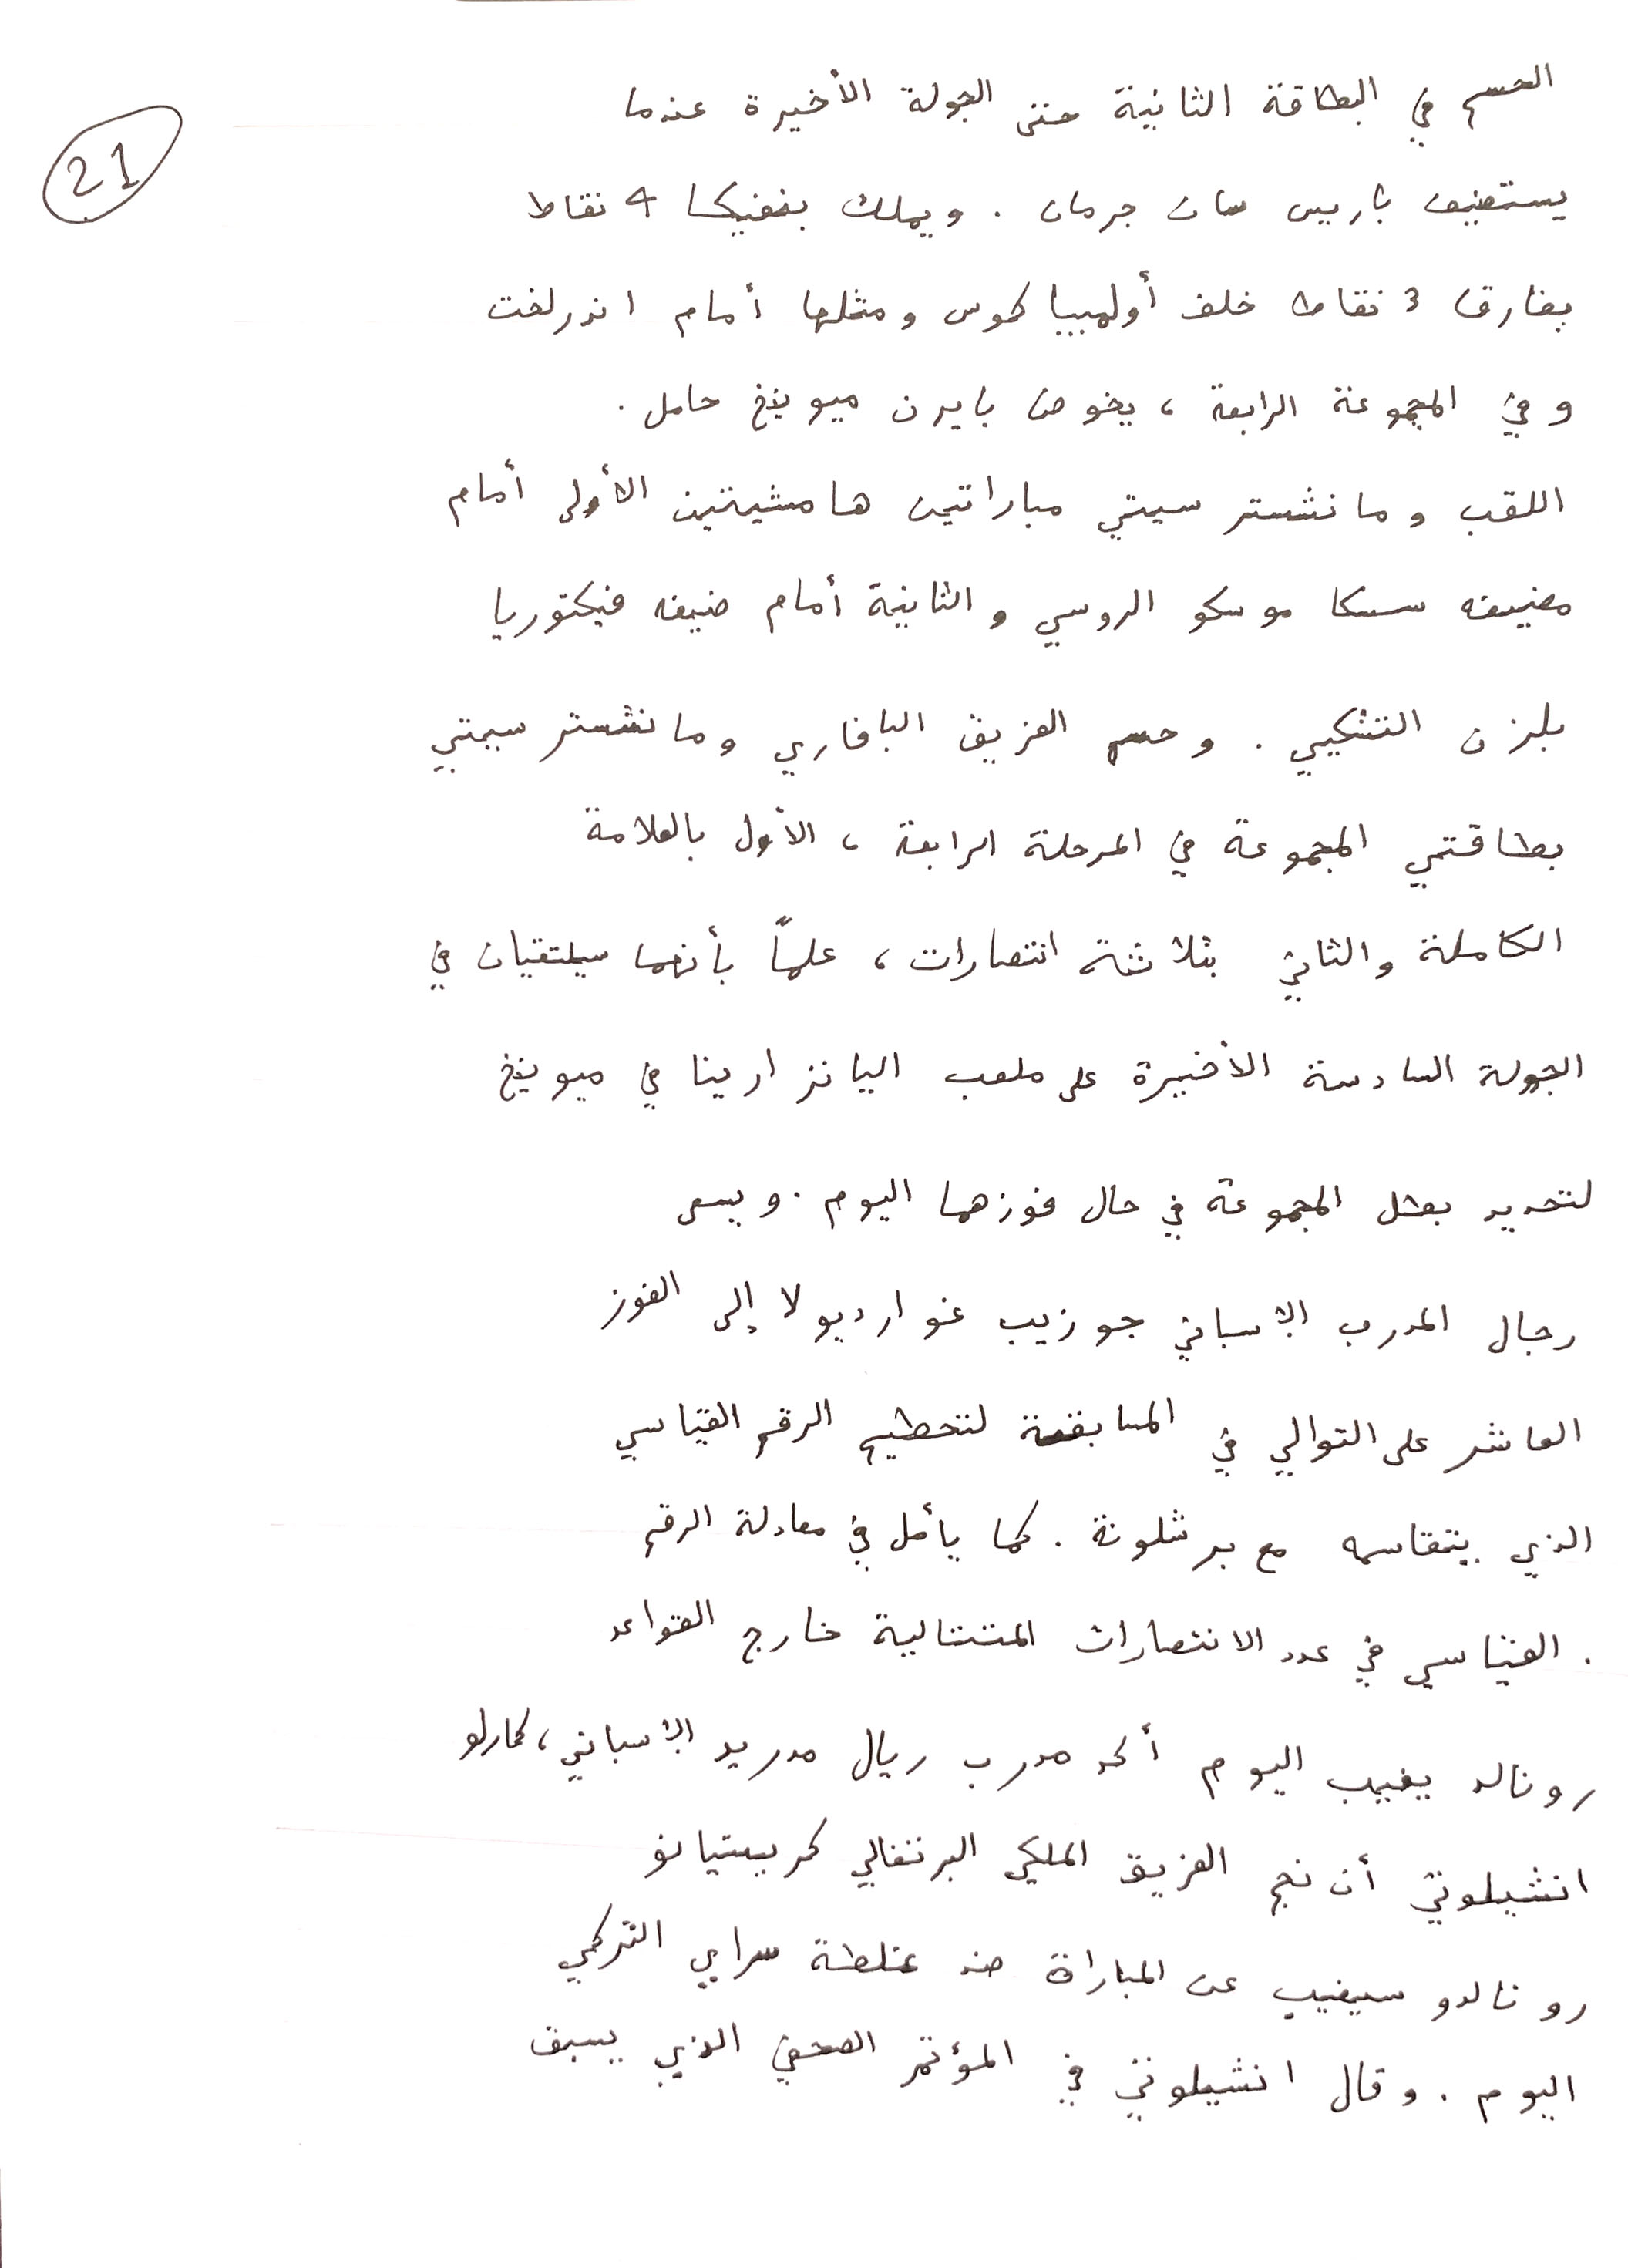 21
الحسم في البطاقة الثانية حتى الجولة الأخيرة عندما
يستضيف باريس سان جرمان . ويملك بنفيكا 4 نقاط
بفارق 3 نقاط خلف أولمبيا كوس ومثلها أمام اندرلخت
وفي المجموعة الرابعة ، يخوض بايرن ميونيخ حامل .
اللقب ومانشستر سيتي مباراتين هامشيتين الأولى أمام
مضيفه سسكا موسكو الروسي والثانية أمام ضيفه فيكتوريا
بلزن التشكيي . وحسم الفريق البافاري ومانشستر سيتي
بطاقتي المجموعة في المرحلة الرابعة ، الأول بالعلامة
الكاملة والثاني بثلاثة انتصارات ، علماً بأنهما سيلتقيان في
الجولة السادسة الأخيرة على ملعب اليانز ارينا في ميونيخ
لتحديد بطل المجموعة في حال فوزهما اليوم . ويسعى
رجال المدرب الاسباني جوزيب غوارديولا إلى الفوز
العاشر على التوالي في المسابقة لتحطيم الرقم القياسي
الذي يتقاسمه مع برشلونة . كما يأمل في معادلة الرقم
. القياسي في عدد الانتصارات المتتالية خارج القواعد
رونالد يغيب اليوم أكد مدرب ريال مدريد الاسباني ، كارلو
انشيلوتي أن نجم الفريق الملكي البرتغالي كريستيانو
رونالدو سيغيب عن المباراة ضد غلطة سراي التركي
اليوم . وقال انشيلوتي في المؤتمر الصحفي الذي يسبق